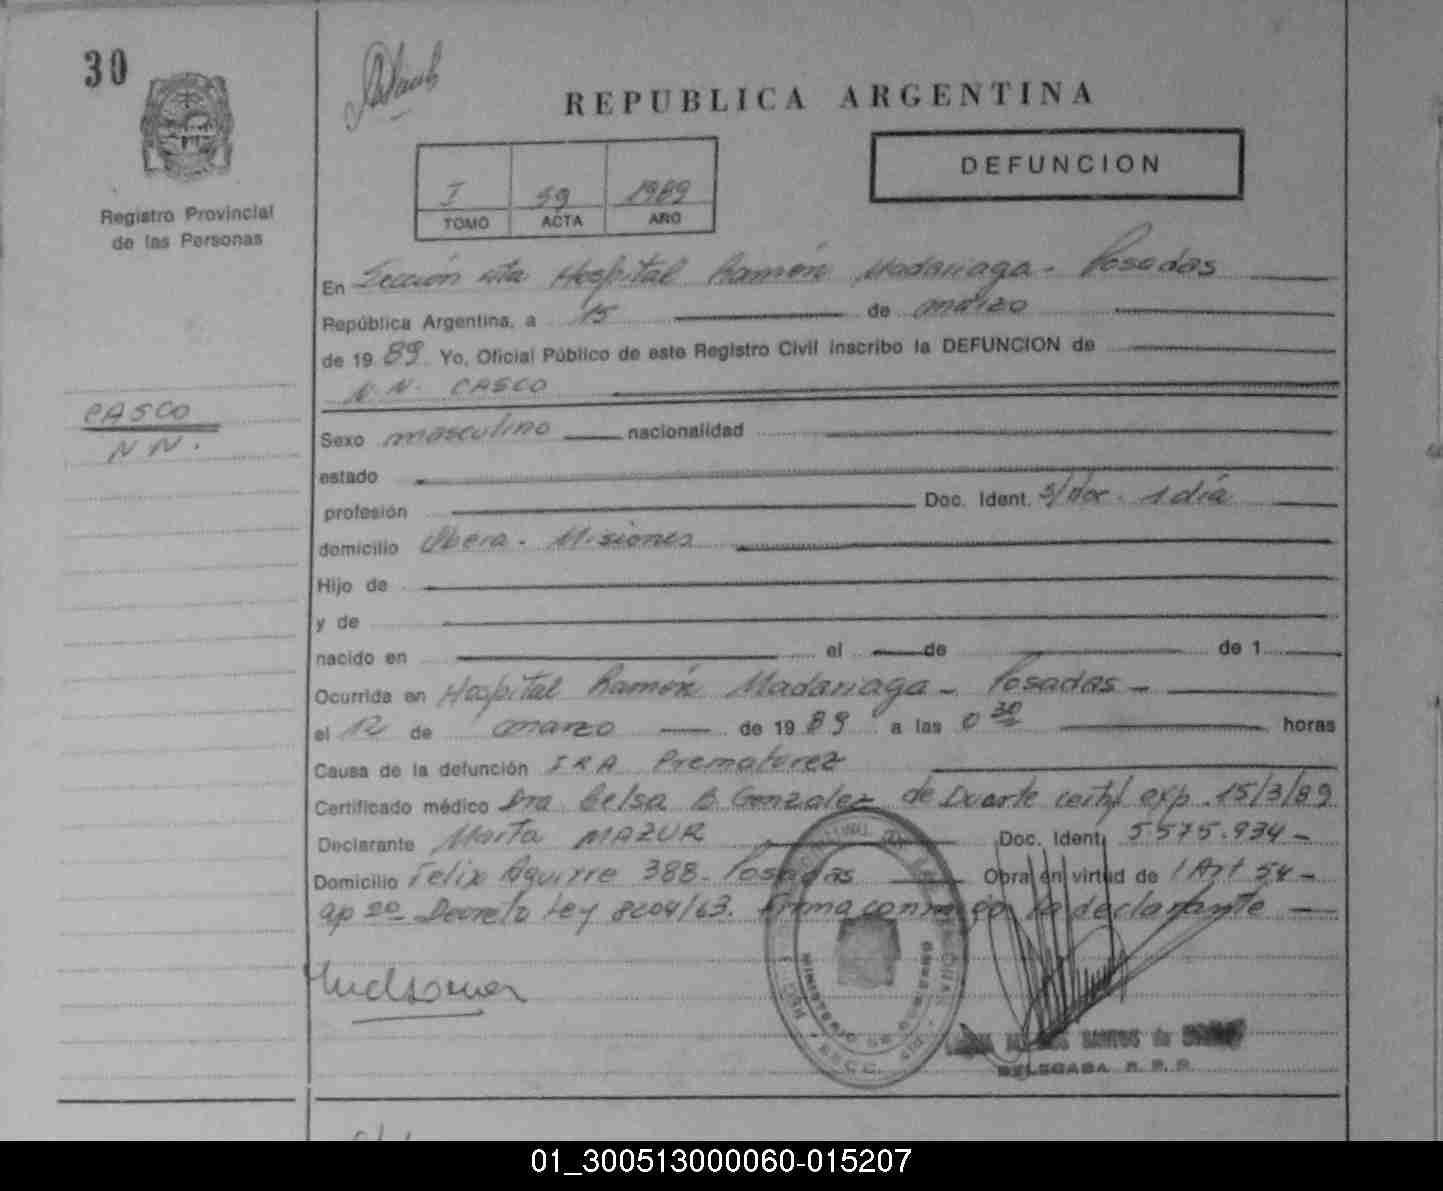 30
REPUBLICA ARGENTINA
DEFUNCION
I 59 1989
TOMO ACTA AÑO
Registro Provincial
de las Personas
CASCO
N N.
En Sección sita Hospital Ramón Madariaga - Posadas
República Argentina, a 15 de marzo
de 1989. Yo, Oficial Público de este Registro Civil inscribo la DEFUNCION de
N. N. CASCO
Sexo masculino nacionalidad
estado
profesión Doc. Ident. 1 día
domicilio Obera - Misiones
Hijo de
y de
nacido en el de de 1
Ocurrida en Hospital Ramón Madariaga - Posadas -
el 12 de marzo de 1989 a las 0 30 horas
Causa de la defunción IRA Prematurez
Certificado médico Dra Celsa B. Gonzalez de Duarte exp. 15/3/89
Declarante Marta MAZUR Doc. Ident. 5.575.934 -
Domicilio Felix Aguirre 388 - Posadas Obra en virtud de Art 54 -
ap 2º Decreto Ley 8204/63. Firma conmigo la declarante
MINISTERIO DE GOBIERNO
SANTOS de
DELEGADA R. P. P.
01_300513000060-015207